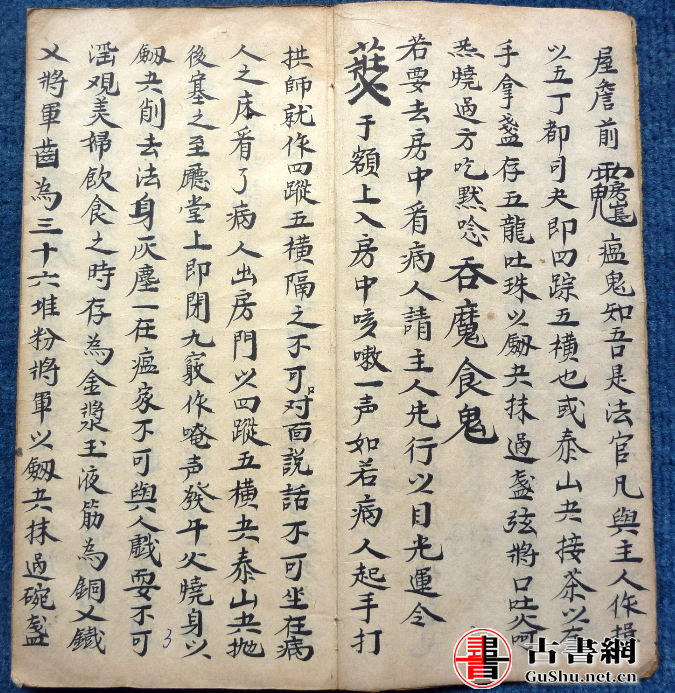 屋詹前 瘟鬼知吾是法官凡與主人作揖
以五丁都司夬即四踪五横也或泰山夬接茶以右
手拿盞存五龍吐珠以劔夬抹過盞弦將口吐火呵
炁燒過方吃默唸吞魔食鬼
若要去房中看病人請主人先行以目光運令
于額上入房中咳嗽一声如若病人起手打
拱師就作四蹤五横隔之不可対面説話不可坐在病
人之床看了病人出房門以四蹤五横夬泰山夬抛
後塞之至廳堂上即閉九竅作唵声發午火燒身以
劔夬削去法身灰塵一在瘟家不可與人戲耍不可
淫观美婦飲食之時存為金漿玉液筋為銅乂鐵
乂將軍齒為三十六堆粉將軍以劔夬抹過碗盞
3
書
古書網
GuShu.net.cn